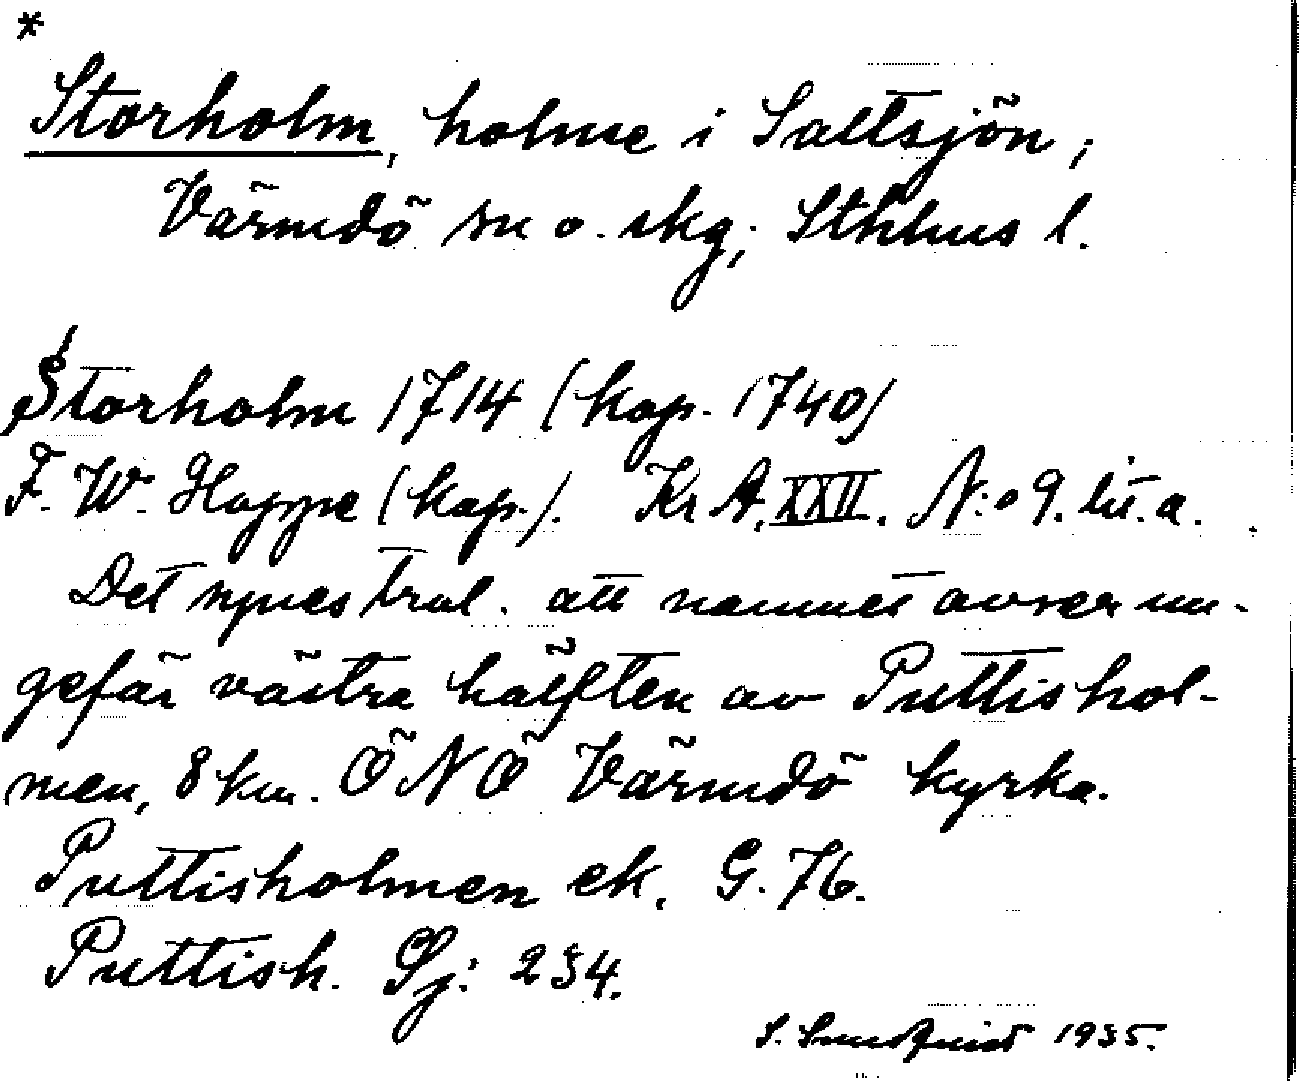 *
Storholm, holme i Saltsjön,
Värmdö sn o. skg, Sthlms l.
Storholm 1714 (kop. 1740)
F. W. Hoppe (kop.). Kr A. XXII. N:o 9. lit. a.
Det synes trol. att namnet avser un-
gefär västra hälften av Puttishol-
men, 8 km. ÖNÖ Värmdö kyrka.
Puttisholmen ek. G. 76.
Puttish. Sj: 234.
S. Sundquist 1935.